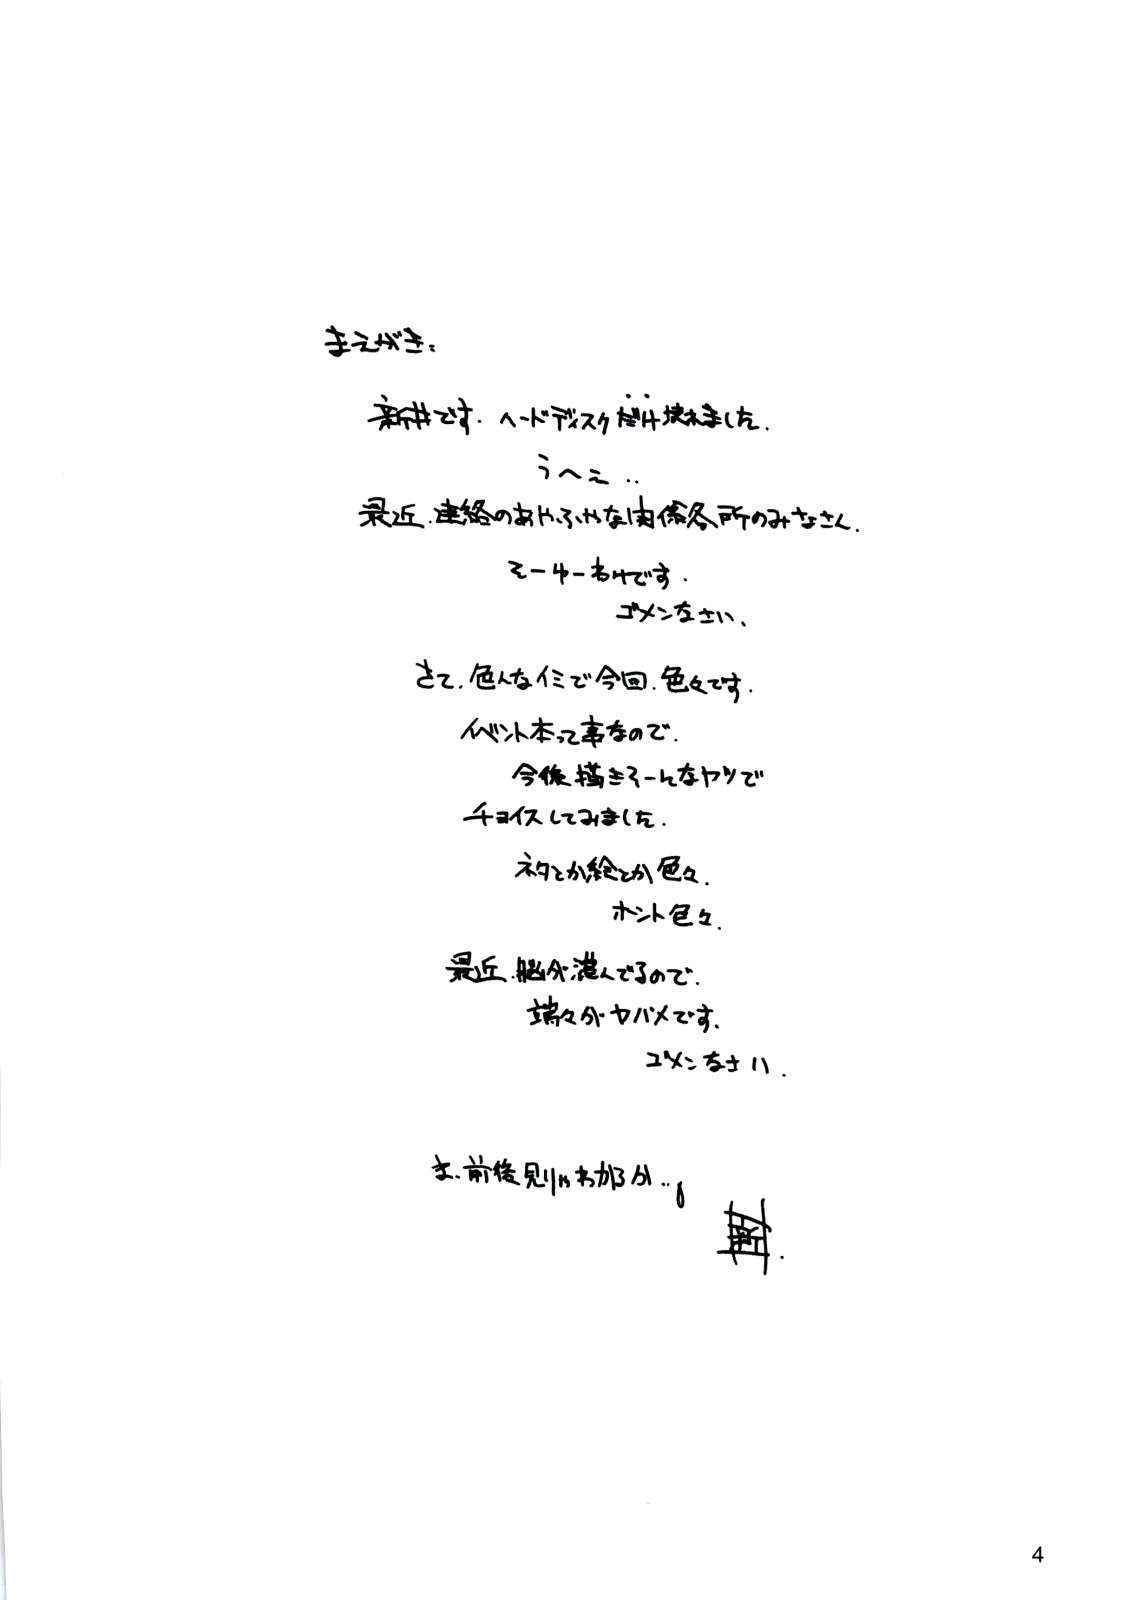 まえがき:
新井です. ヘードディスクだけ壊れました.
うへぇ..
最近.連絡のあやふやな関係各所のみなさん.
そーゆーわけです.
ゴメンなさい.
さて.色んなイミで今回.色々です.
イベント本って事なので.
今後描きそーんなヤツで
チョイスしてみました.
ネタとか絵とか色々.
ホント色々.
最近.脳が濃んでるので.
端々がヤバメです.
ゴメンなさい.
ま.前後見りゃわかるか..。
新
4